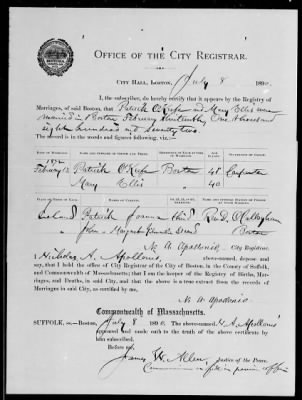 OFFICE OF THE CITY REGISTRAR.
CITY HALL, BOSTON, July 8 189
I, the subscriber, do hereby certify that it appears by the Registry of
Marriages, of said Boston, that Patrick O'Keefe and Mary Ellis were
married in Boston February One thousand
eight hundred and seventy two.
The record is in the words and figures following, to wit:—
1872
February 13 Patrick O'Keefe Boston 48 Carpenter
Mary Ellis " 40
Ireland Patrick Joanna third Rev. D. O'Callaghan
" John Margaret Boston
N. A. Apollonio, City Registrar.
I, Nicholas A. Apollonio, above-named, depose and
say, that I hold the office of City Registrar of the City of Boston, in the County of Suffolk,
and Commonwealth of Massachusetts; that I am the keeper of the Registry of Births, Mar-
riages, and Deaths, in said City, and that the above is a true extract from the records
of Marriages in said City, as certified by me,
N. A. Apollonio
Commonwealth of Massachusetts.
SUFFOLK, ss.—Boston, July 8 189 The above-named N. A. Apollonio
appeared and made oath to the truth of the above certificate by
him subscribed.
Before me,
James W. Allen, Justice of the Peace.